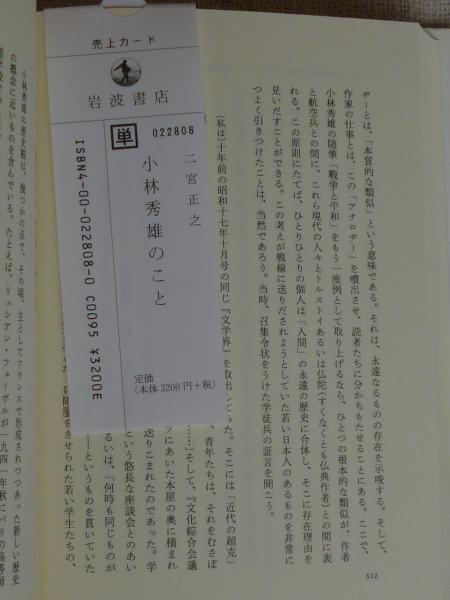 売上カード
岩波書店
単
022808
二宮正之
小林秀雄のこと
ISBN4-00-022808-0 C0095 ¥3200E
定価
(本体3200円+税)
ヂーとは、「本質的な類似」という意味である。それは、永遠なるものの存在を示唆する。そして、
作家の仕事とは、この「アナロヂー」を噴出させ、読者たちに分かちもたせることにある。ここで、
小林秀雄の随筆「戦争と平和」をもう一度例として取り上げるなら、ひとつの根本的な類似が、作者
と航空兵との間に、これら現代の人々とトルストイあるいは仏陀(すくなくとも仏典作者)との間に表
れる。この原則にたてば、ひとりひとりの個人は「人間」の永遠の歴史に合体し、そこに存在理由を
見いだすことができる。この考えが戦線に送りだされようとしていた若い日本人のあるものを非常に
つよく引きつけたことは、当然であろう。当時、召集令状をうけた学徒兵の証言を聞こう。
〔私は〕十年前の昭和十七年十月号の同じ『文学界』を取出してみた。そこには「近代の超克」
青年たちは、それをむさぼ
にあいた本屋の奥に積まれ
……〕そして、『文化綜合会議
送りこまれたのであった。学
という悠長な座談会とのあい
るいは、「何時も同じものが
――というものを貫いていた
をきせられた若い学生たちの、
小林秀雄の歴史観は、幾つかの点で、その頃、主としてフランスで形成されつつあった新しい歴史
の概念に近いものを含んでいる。たとえば、リュシアン・フェーヴルが一九四一年秋にパリの高等師
312